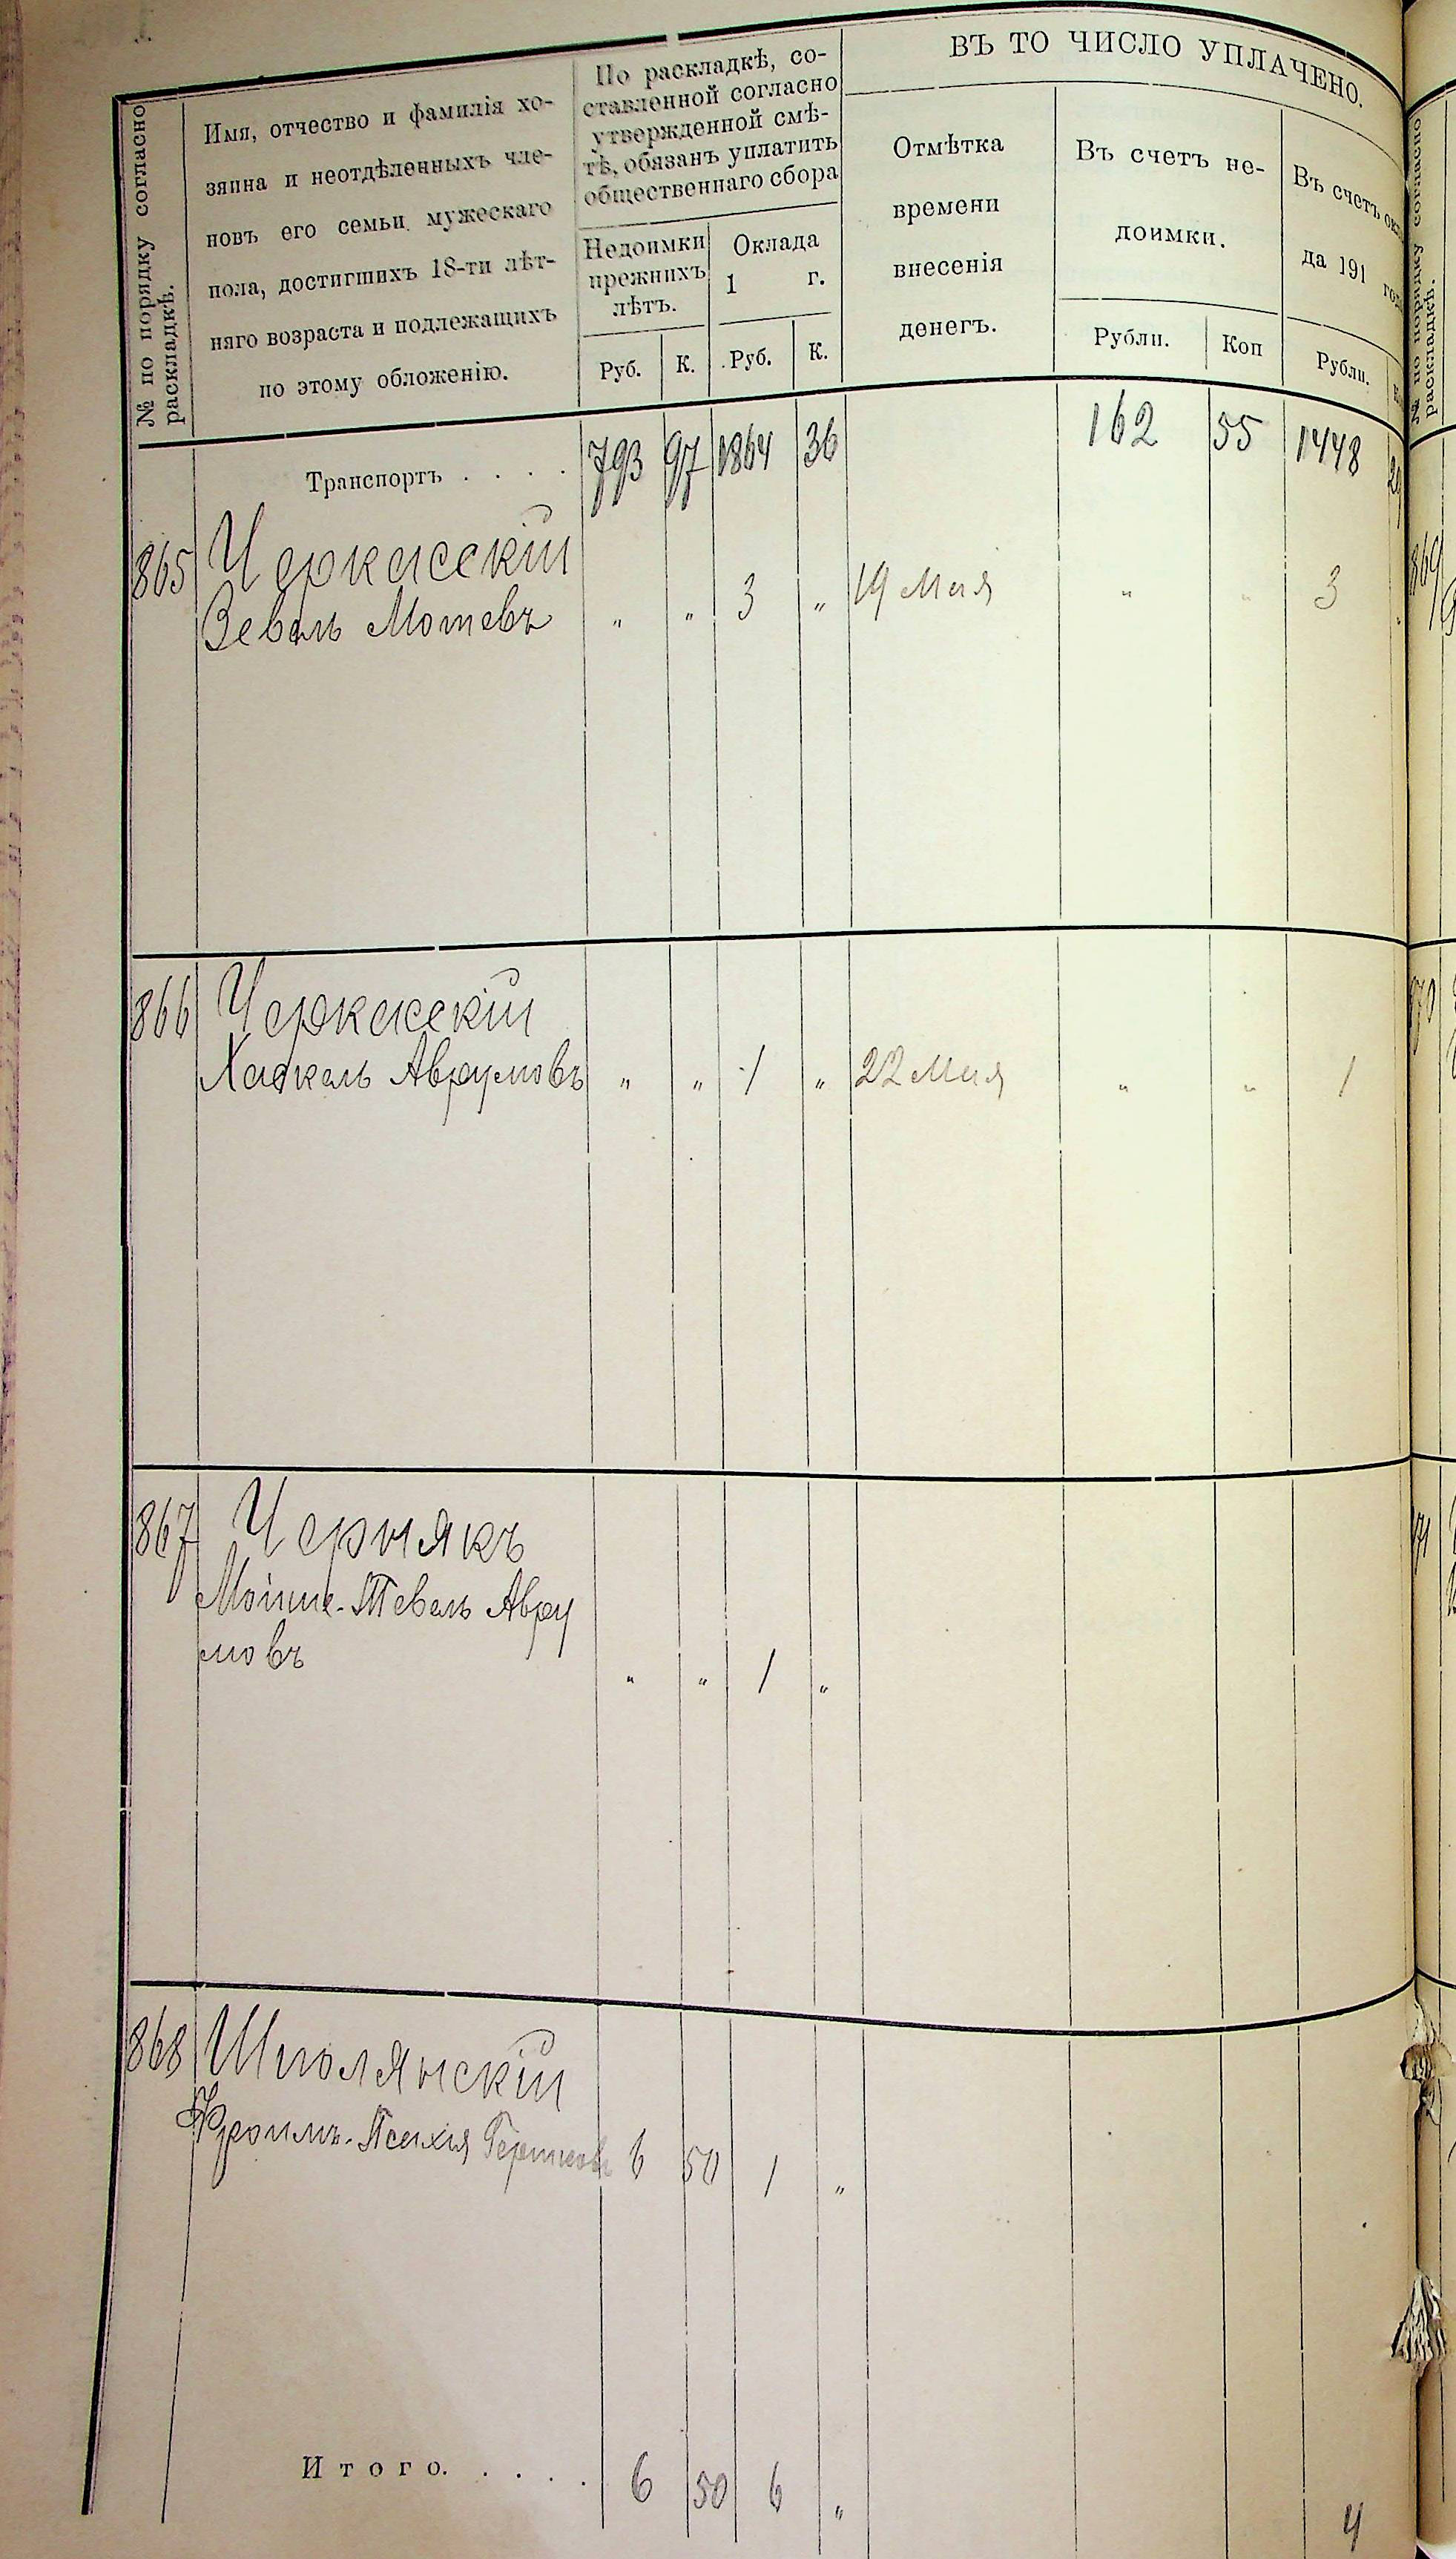 № по порядку согласно
раскладкѣ.
Имя, отчество и фамилія хо-
зяина и неотдѣленныхъ чле-
новъ его семьи мужескаго
пола, достигшихъ 18-ти лѣт-
няго возраста и подлежащихъ
по этому обложенію.
По раскладкѣ, со-
ставленной согласно
утвержденной смѣ-
тѣ, обязанъ уплатить
общественнаго сбора
Недоимки
прежнихъ
лѣтъ.
Оклада
1 г.
Руб. К. Руб. К.
ВЪ ТО ЧИСЛО УПЛАЧЕНО.
Отмѣтка
времени
внесенія
денегъ.
Въ счетъ не-
доимки.
Рубли. Коп
Въ счетъ
да 191
Рубли.
№ по порядку согласно
раскладкѣ.
Транспортъ . . . . 793 97 1864 36 162 55 1448
865 Черкасскій
Зевель Мотевъ " " 3 " 19 Мая " " 3
866 Черкасскій
Хаскель Аврумовъ " " 1 " 22 Мая " " 1
867 Чернякъ
Мойше-Тевель Авру
мовъ " " 1 "
868 Шполянскій
Фроимъ-Псахія Гершковъ 6 50 1 "
Итого. . . . . 6 50 6 " 4